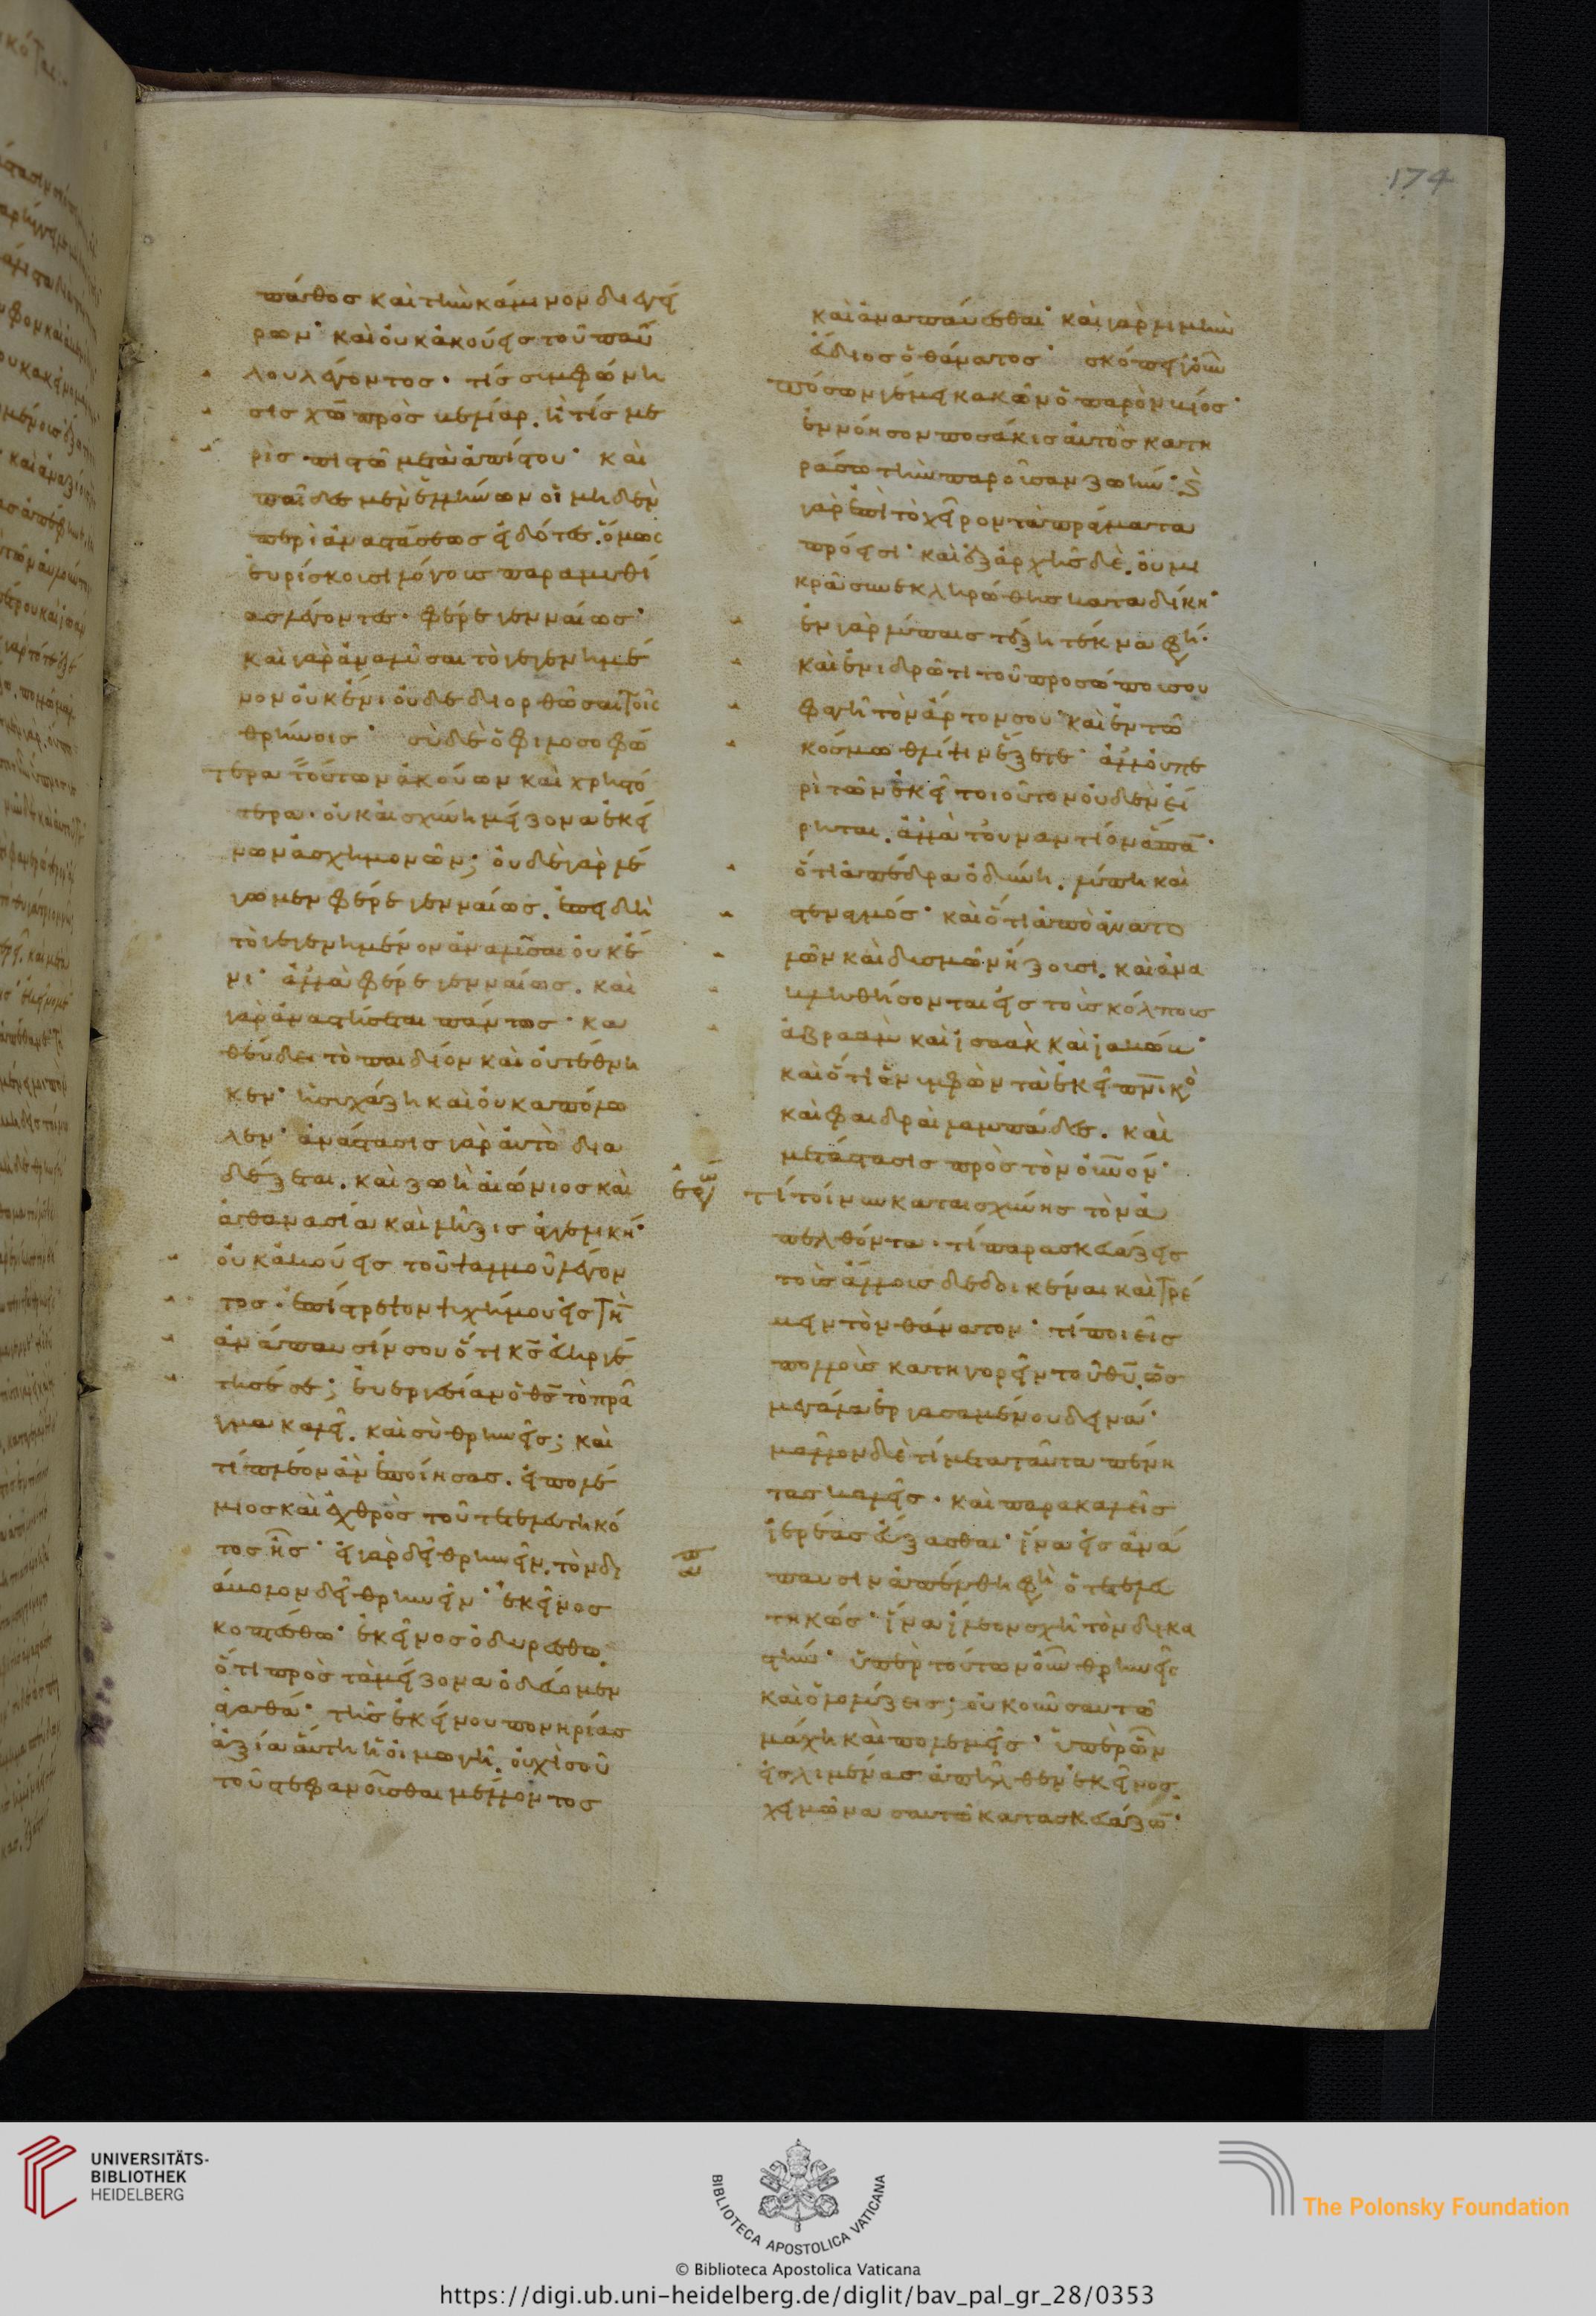 174
πάθος καὶ τὴν κάμινον διεγεί
ρων· καὶ οὐκ ἀκούεις τοῦ παύ
λου λέγοντος· τίς συμφώνη
σις χῶ πρὸς βελίαρ. ἢ τίς με
ρὶς πιστῶ μετὰ ἀπίστου· καὶ
παῖδες μὲν ἑλλήνων οἱ μηδὲν
περὶ ἀναστάσεως εἰδότες. ὅμως
εὑρίσκουσι λόγους παραμυθί
ας λέγοντες. φέρε γενναίως·
καὶ γὰρ ἀναλῦσαι τὸ γεγενημέ
νον οὐκ ἔνι οὐδὲ διορθῶσαι τοῖς
θρήνοις· σὺ δὲ ὁ φιλοσοφώ
τερα τούτων ἀκούων καὶ χρηστό
τερα. οὐκ αἰσχύνη μείζονα ἐκεί
νων ἀσχημονῶν; οὐδὲ γὰρ λέ
γωμεν φέρε γενναίως. ἐπειδὴ
τὸ γεγενημένον ἀναλῦσαι οὐκ ἔ
νι· ἀλλὰ φέρε γενναίως. καὶ
γὰρ ἀναστήσεται πάντως· κα
θεύδει τὸ παιδίον καὶ οὐ τέθνη
κεν· ἡσυχάζει καὶ οὐκ ἀπόλω
λεν· ἀνάστασις γὰρ αὐτὸ δια
δέξεται. καὶ ζωὴ αἰώνιος καὶ
ἀθανασία καὶ λῆξις ἀγγελική·
οὐκ ἀκούεις τοῦ ψαλμοῦ λέγον
τος. ἐπίστρεψον ψυχή μου εἰς τὴν
ἀνάπαυσίν σου ὅτι κς εὐηργέ
τησέ σε; εὐεργεσίαν ὁ θς τὸ πρᾶ
γμα καλεῖ. καὶ σὺ θρηνεῖς; καὶ
τί πλέον ἂν ἐποίησας. εἰ πολέ
μιος καὶ ἐχθρὸς τοῦ τετελευτηκό
τος ἦς· εἰ γὰρ δεῖ θρηνεῖν. τὸν δι
άβολον δεῖ θρηνεῖν· ἐκεῖνος
κοπτέσθω· ἐκεῖνος ὀδυρέσθω.
ὅτι πρὸς τὰ μείζονα ὁδεύομεν
ἀγαθά· τῆς ἐκείνου πονηρίας
ἀξία αὕτη ἡ οἰμωγὴ. οὐχὶ σοῦ
τοῦ στεφανοῦσθαι μέλλοντος
καὶ ἀναπαύεσθαι· καὶ γὰρ λιμὴν
εὔδιος ὁ θάνατος· σκόπει γοῦν
πόσων γέμει κακῶν ὁ παρὼν βίος·
ἐννόησον ποσάκις αὐτὸς κατη
ράσω τὴν παροῦσαν ζωήν·
γὰρ ἐπὶ τὸ χεῖρον τὰ πράγματα
πρόεισι· καὶ ἐξ ἀρχῆς δὲ. οὐ μι
κρὰν συνεκληρώθης καταδίκην·
ἐν γὰρ λύπαις τέξη τέκνα φη.
καὶ ἐν ἱδρῶτι τοῦ προσώπου σου
φαγῆ τὸν ἄρτον σου· καὶ ἐν τῶ
κόσμω θλίψιν ἕξετε· ἀλλ' οὐ πε
ρὶ τῶν ἐκεῖ τοιοῦτον οὐδὲν εἴ
ρηται. ἀλλὰ τοὐναντίον ἅπαν·
ὅτι ἀπέδρα ὀδύνη. λύπη καὶ
στεναγμός· καὶ ὅτι ἀπὸ ἀνατο
λῶν καὶ δυσμῶν ἥξουσι. καὶ ἀνα
κλιθήσονται εἰς τοὺς κόλπους
ἀβραὰμ καὶ ἰσαὰκ καὶ ἰακώβ·
καὶ ὅτι νυμφὼν τὰ ἐκεῖ πνικὸς
καὶ φαιδραὶ λαμπάδες. καὶ
μετάστασις πρὸς τὸν οὐνον·
τί τοίνυν καταισχύνης τὸν ἀ
πελθόντα. τί παρασκευάζεις
τοὺς ἄλλους δεδοικέναι καὶ τρέ
μειν τὸν θάνατον· τί ποιεῖς
πολλοὺς κατηγορεῖν τοῦ θυ. ὡς
μεγάλα ἐργασαμένου δεινά·
μᾶλλον δὲ τί μετὰ ταῦτα πένη
τας καλεῖς. καὶ παρακαλεῖς
ἱερέας εὔξασθαι· ἵνα εἰς ἀνά
παυσιν ἀπέλθη φη ὁ τετελευ
τηκώς· ἵνα ἵλεων σχῆ τὸν δικα
στήν· ὑπὲρ τούτων οὖν θρηνεῖς
καὶ ὀλολύζεις; οὐκοῦν σαυτῶ
μάχη καὶ πολεμεῖς· ὑπὲρ ὧν
εἰς λιμένας ἀπῆλθεν ἐκεῖνος.
χειμῶνα σαυτῶ κατασκευάζων·
UNIVERSITÄTS-
BIBLIOTHEK
HEIDELBERG
BIBLIOTECA APOSTOLICA VATICANA
The Polonsky Foundation
© Biblioteca Apostolica Vaticana
https://digi.ub.uni-heidelberg.de/diglit/bav_pal_gr_28/0353